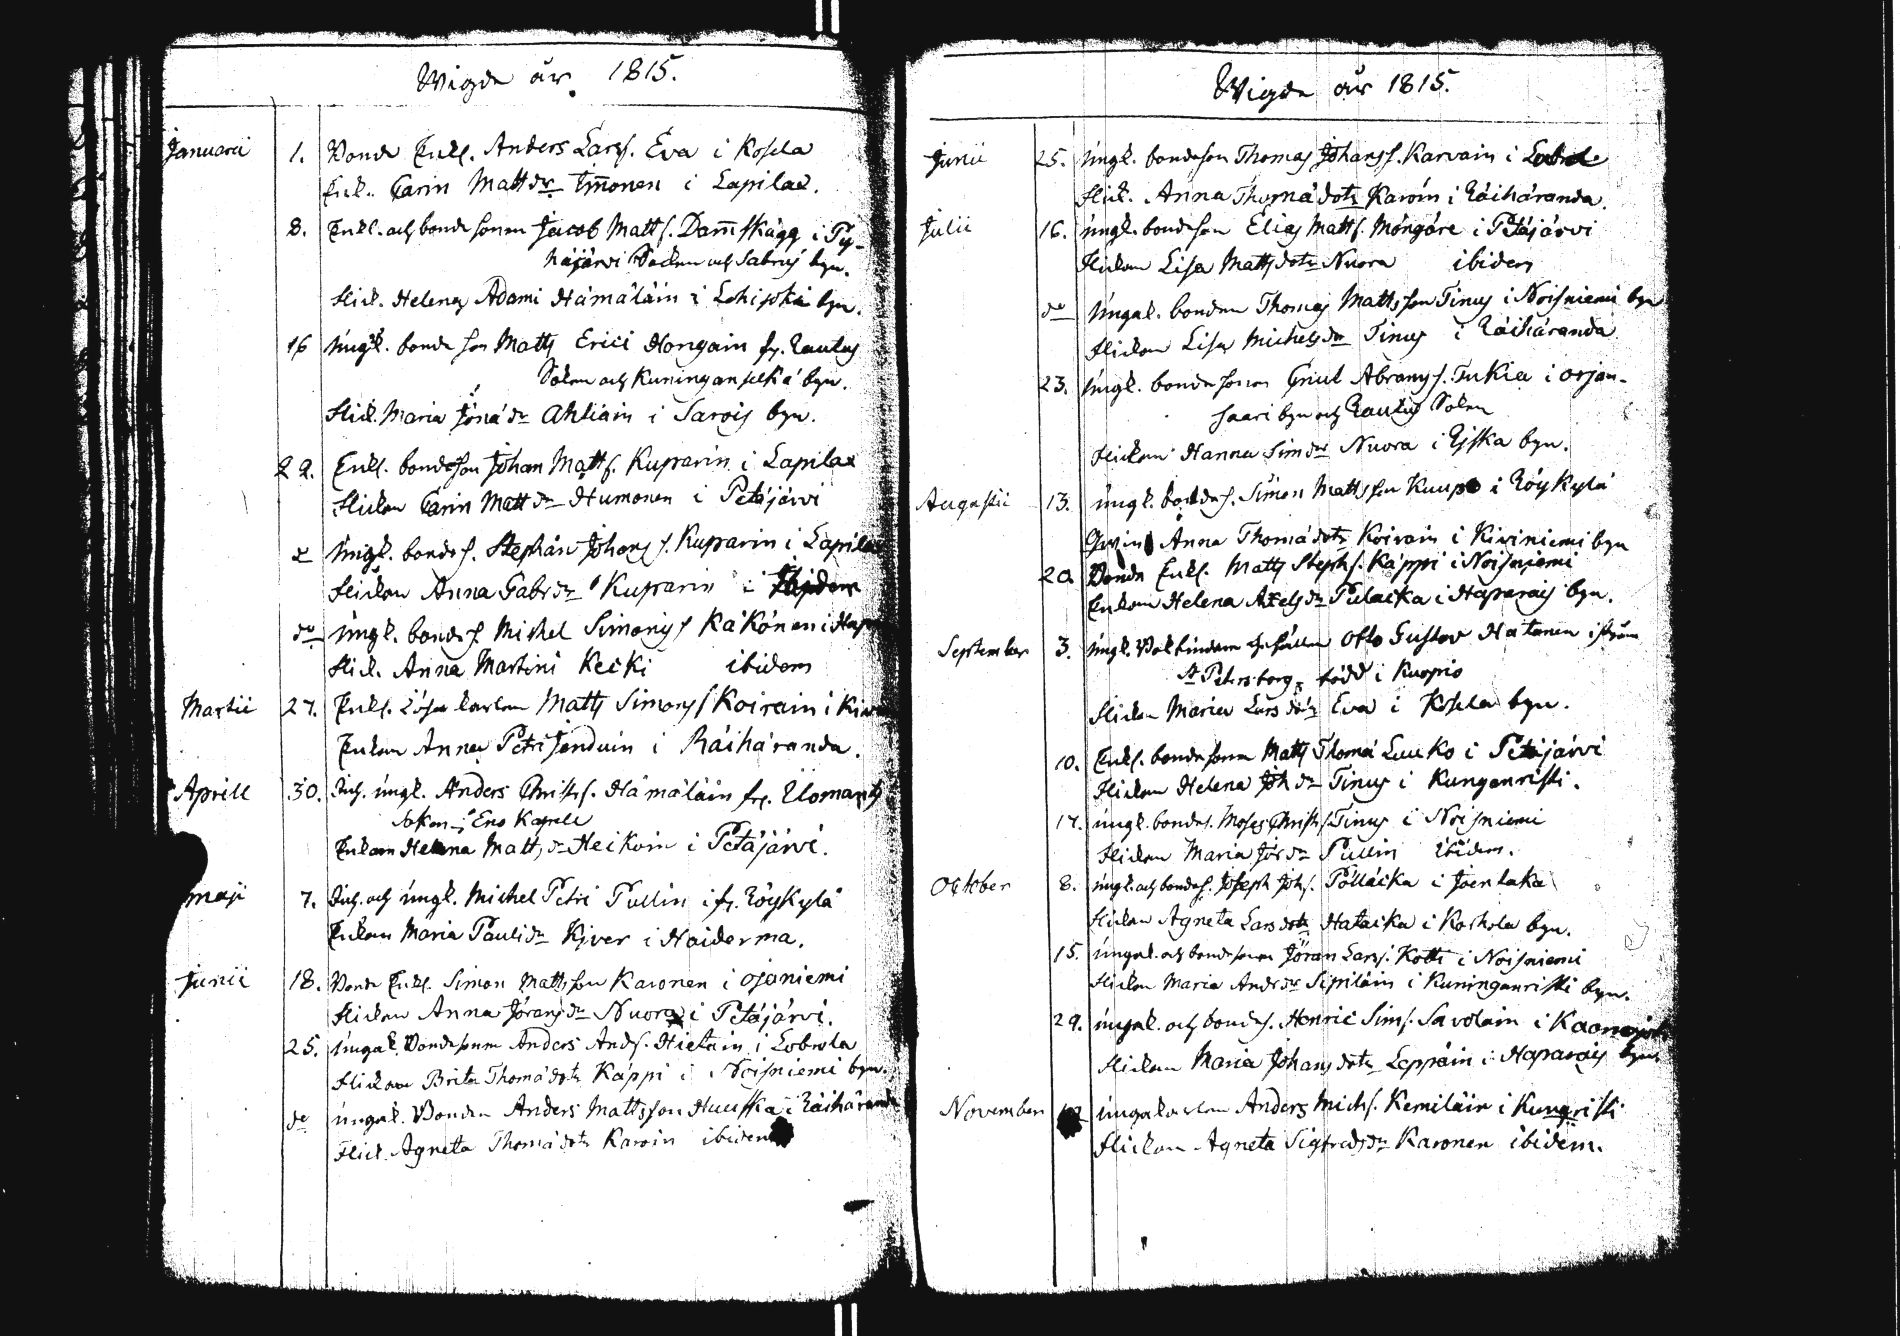 Wigde år 1815.
Januarii 1. Bonde Enkl. Anders Larss. Eva i Kosela
Enk. Carin Mattsdr Immonen i Lapilax.
8. Enkl. och bonde sonen Jacob Matts. Damskägg i Py-
häjärvi Socken och Sabrus byn.
Flick. Helena Adami Hämäläin i Lohijoki byn.
16 Ungk. bonde son Matts Erici Hongain fr. Rautus
Soken och Kuninganselkä byn.
Flick. Maria Jöradr Ahtiain i Sarois byn.
22. Enkl. bondeson Johan Matts. Kuparin i Lapilax
Flickan Carin Mattsdr Humonen i Petäjärvi
Ungk. bondes. Stephan Johans s. Kuparin i Lapilax
Flickan Anna Gabrdr Kuparin i ibidem
do Ungk. bondes Michel Simons s Käkönen i
Flick. Anna Martini Kecki ibidem
Martii 27. Enkl. Lösekarlen Matts Simons s Koirain i
Enkan Anna Petri Jenduin i Räihäranda.
Aprill 30. Inh. ungk. Anders Christs. Hämäläin fr. Ilomants
Soken Eno Kapell
Enkan Helena Mattsdr Heikoin i Petäjärvi.
Maji 7. Inh. och ungk. Michel Petri Pullin i fr. Röykylä
Enkan Maria Paulidr Kiver i Haiderma.
Junii 18. Bonde Enkl. Simon Mattsson Karonen i Ojaniemi
Flickan Anna Jöransdr Nuora i Petäjärvi.
25. Ungak. Bondesonen Anders Ands. Hietain i
Flickan Brita Thomädotr Käppi i Noisniemi byn.
do Ungak. Bonden Anders Mattsson Huuska i Räihäranda
Flick. Agneta Thomädotr Karvin ibidem
Wigde år 1815.
Junii 25. Ungk. bondeson Thomas Johanss. Karvain i
Flick. Anna Thomädotr Karvin i Räihäranda.
Julii 16. Ungk. bondeson Elias Matts. Möngäre i Petäjärvi
Flickan Lisa Mattsdotr Nuora ibidem
do Ungak. bonden Thomas Mattsson Tinus i Noisniemi byn
Flickan Lisa Michelsdr Tinus i Räihäranda
23. Ungk. bonde sonen Griul Abrams s. Tukia i Orjan-
saari byn och Rautus Soken
Flickan Hanna Simdr Nuora i Riska byn.
Augustii 13. Ungk. bondes. Simon Mattsson Kuupo i Röykylä
Anna Thomädotr Koirain i Kiviniemi byn
20. Bonde Enkl. Matts Stephs. Käppi i Noisniemi
Enkan Helena Axelsdr Pulacka i Haparais byn.
September 3. Ungk. Bokbindare gesällen Otto Gustav Hatanen ifrån
St Petersborg, född i Kuopio
Flickan Maria Larsdotr Eva i Kosela byn.
10. Enkl. bondesonen Matts Thomä Luuko i Petäjärvi
Flickan Helena Johdr Tinus i Kunganristi.
17. Ungk. bondes. Moses Christs. Tinus i Noisniemi
Flickan Maria Jördr Pullin ibidem.
October 8. Ungk. och bondes. Joseph Johs. Pölläcka i Joentaka
Flickan Agneta Larsdotr Hatacka i Koskola byn.
15. Ungak. och bondesonen Jöran Larss. Kotti i Noisniemi
Flickan Maria Andrdr Sipiläin i Kuninganristi byn.
29. Ungak. och bondes. Henric Sims. Savolain i
Flickan Maria Johansdotr Leppäin i Haparais byn
November Ungakarlen Anders Michs. Kemiläin i Kungristi
Flickan Agneta Sigfredsdr Karonen ibidem.